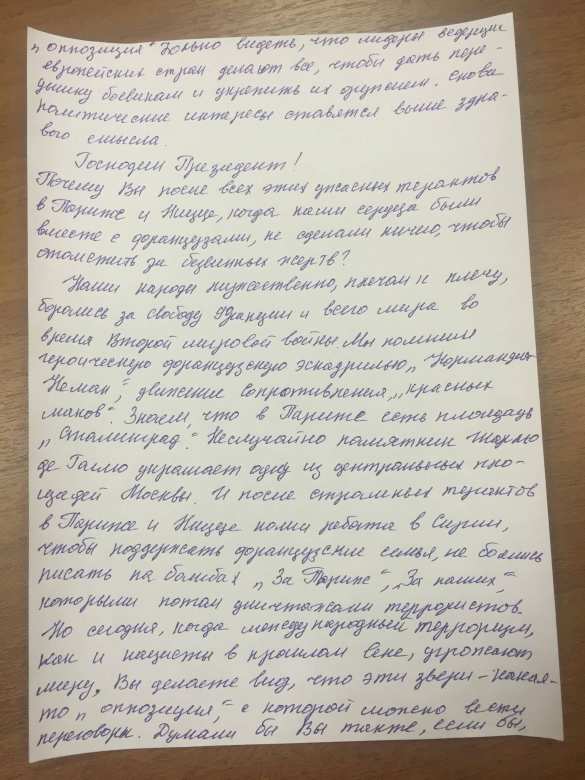 „оппозиция" Больно видеть, что лидеры ведущих
европейских стран делают все, чтобы дать пере-
дышку боевикам и укрепить их оружием. Снова
политические интересы ставятся выше здра-
вого смысла.
Господин Президент!
Почему Вы после всех этих ужасных терактов
в Париже и Ницце, когда нами сердца были
вместе с французами, не сделали ничего, чтобы
отомстить за безвинных жертв?
Наши народы мужественно, плечом к плечу,
боролись за свободу Франции и всего мира во
время Второй мировой войны. Мы помним
героическую французскую эскадрилью „Нормандия-
Неман", движение Сопротивления, „красных
маков". Знаем, что в Париже есть площадь
„Сталинград". Неслучайно памятник Шарлю
де Голлю украшает одну из центральных пло-
щадей Москвы. И после страшных терактов
в Париже и Ницце наши ребята в Сирии,
чтобы поддержать французские семьи, не боялись
писать на бомбах „За Париж", „За наших",
которыми потом уничтожали террористов.
Но сегодня, когда международный терроризм,
как и нацисты в прошлом веке, угрожают
миру, Вы делаете вид, что эти звери – какая-
то „оппозиция", с которой можно вести
переговоры. Думали бы Вы также, если бы,